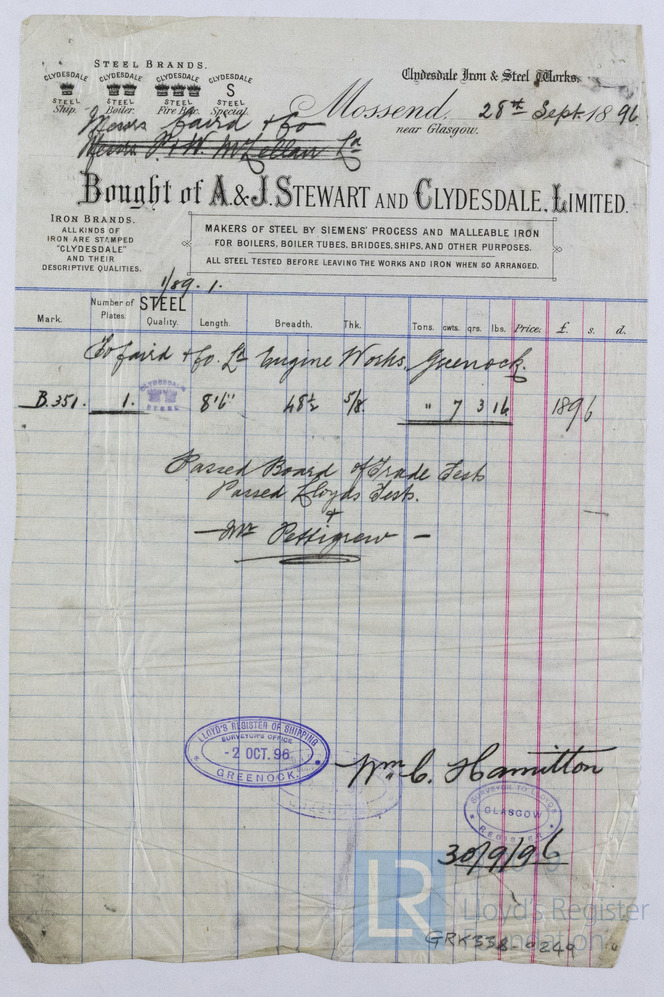 STEEL BRANDS.
CLYDESDALE STEEL Ship.
CLYDESDALE STEEL Boiler.
CLYDESDALE STEEL Fire Box.
CLYDESDALE S STEEL Special.
Clydesdale Iron & Steel Works.
Mossend. 28th Sept. 1896.
near Glasgow.
Messrs Caird & Co
Messrs P & W McLellan Ld
Bought of A. & J. STEWART AND CLYDESDALE, LIMITED.
IRON BRANDS.
ALL KINDS OF
IRON ARE STAMPED
"CLYDESDALE"
AND THEIR
DESCRIPTIVE QUALITIES.
MAKERS OF STEEL BY SIEMENS' PROCESS AND MALLEABLE IRON
FOR BOILERS, BOILER TUBES, BRIDGES, SHIPS, AND OTHER PURPOSES.
ALL STEEL TESTED BEFORE LEAVING THE WORKS AND IRON WHEN SO ARRANGED.
1/89. 1.
Mark. Number of Plates. STEEL Quality. Length. Breadth. Thk. Tons. cwts. qrs. lbs. Price: £. s. d.
To Caird & Co. Ld Engine Works, Greenock.
B.351. 1. CLYDESDALE STEEL 8'6" 48½ 5/8 " 7 3 16 1896
Passed Board of Trade Tests
Passed Lloyds Tests.
&
— Mr Pettigrew —
LLOYD'S REGISTER OF SHIPPING
SURVEYOR'S OFFICE
- 2 OCT. 96
GREENOCK.
Wm C. Hamilton
SURVEYOR TO LLOYDS
GLASGOW
REGISTER
30/9/96
LR Lloyd's Register
Foundation
GRK338-0249